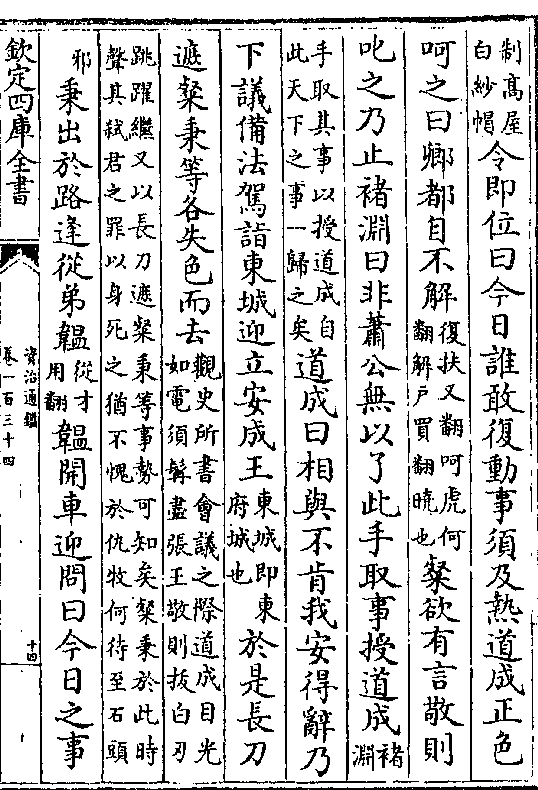 制髙屋白紗帽令即位曰今日誰敢復動事須及熱道成正色
呵之曰卿都自不解復扶又翻呵虎何翻解户買翻曉也粲欲有言敬則
叱之乃止褚淵曰非蕭公無以了此手取事授道成褚淵
手取其事以授道成自此天下之事一歸之矣道成曰相與不肯我安得辭乃
下議備法駕詣東城迎立安成王東城即東府城也於是長刀
遮粲秉等各失色而去觀史所書會議之際道成目光如電須髯盡張王敬則抜白刃
跳躍繼又以長刀遮粲秉等事勢可知矣粲秉於此時聲其弑君之罪以身死之猶不愧於仇牧何待至石頭
邪秉出於路逢從弟韞從才用翻韞開車迎問曰今日之事
欽定四庫全書
資治通鑑
卷一百三十四
十四